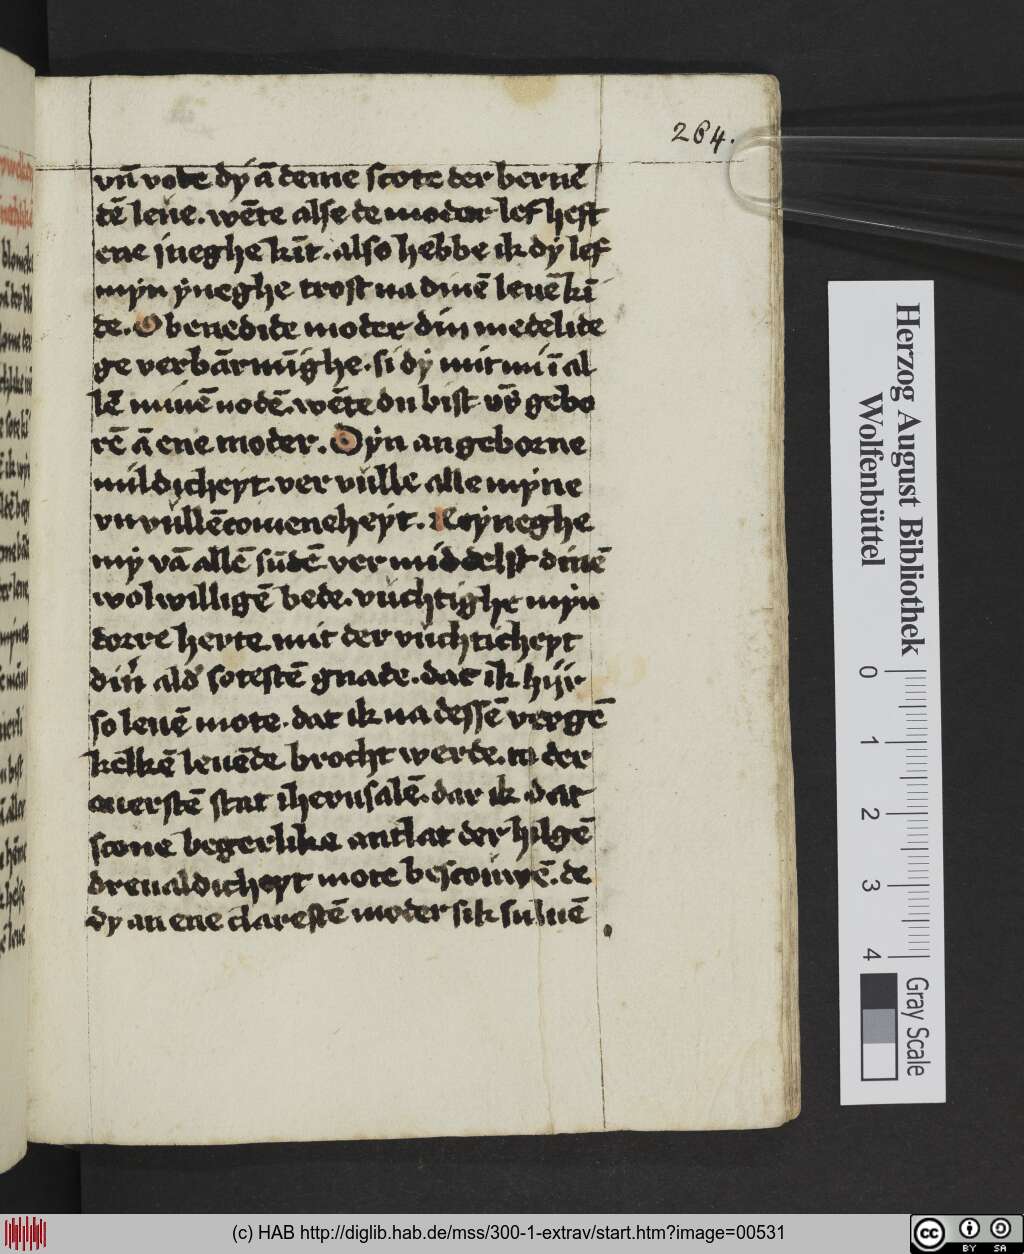 264.
vn̄ vode dẏ ā deme scote der bernē
dē leue. wēte alse de moder lef heft
ene ẏneghe kīt. also hebbe ik dẏ lef
mẏn ẏneghe trost na dinē leuē kī
de. O benedide moder din medelide
ge verbārmīghe. si dẏ mit mi ī al
lē minē nodē. wēte du bist vƺ gebo
rē ā ene moder. Dẏn angeborne
mildicheẏt. ver vulle alle mẏne
vnvullēcomeneheẏt. Reẏneghe
mẏ vā allē sūdē. ver middelst dinē
wolwilligē bede. vuchtighe mẏn
dorre herte. mit der vuchticheẏt
din̄ ald sotestē gnade. dat ik hijr
so leuē mote. dat ik na dessē vergē
kelkē leuēde brocht werde. to der
ouerstē stat iherusalē. dar ik dat
scone begerlike antlat der hilgē
dreualdicheẏt mote bescouwē. de
dy an ene clarestē moder sik suluē
Herzog August Bibliothek
Wolfenbüttel
0 1 2 3 4
Gray Scale
(c) HAB http://diglib.hab.de/mss/300-1-extrav/start.htm?image=00531
cc BY SA